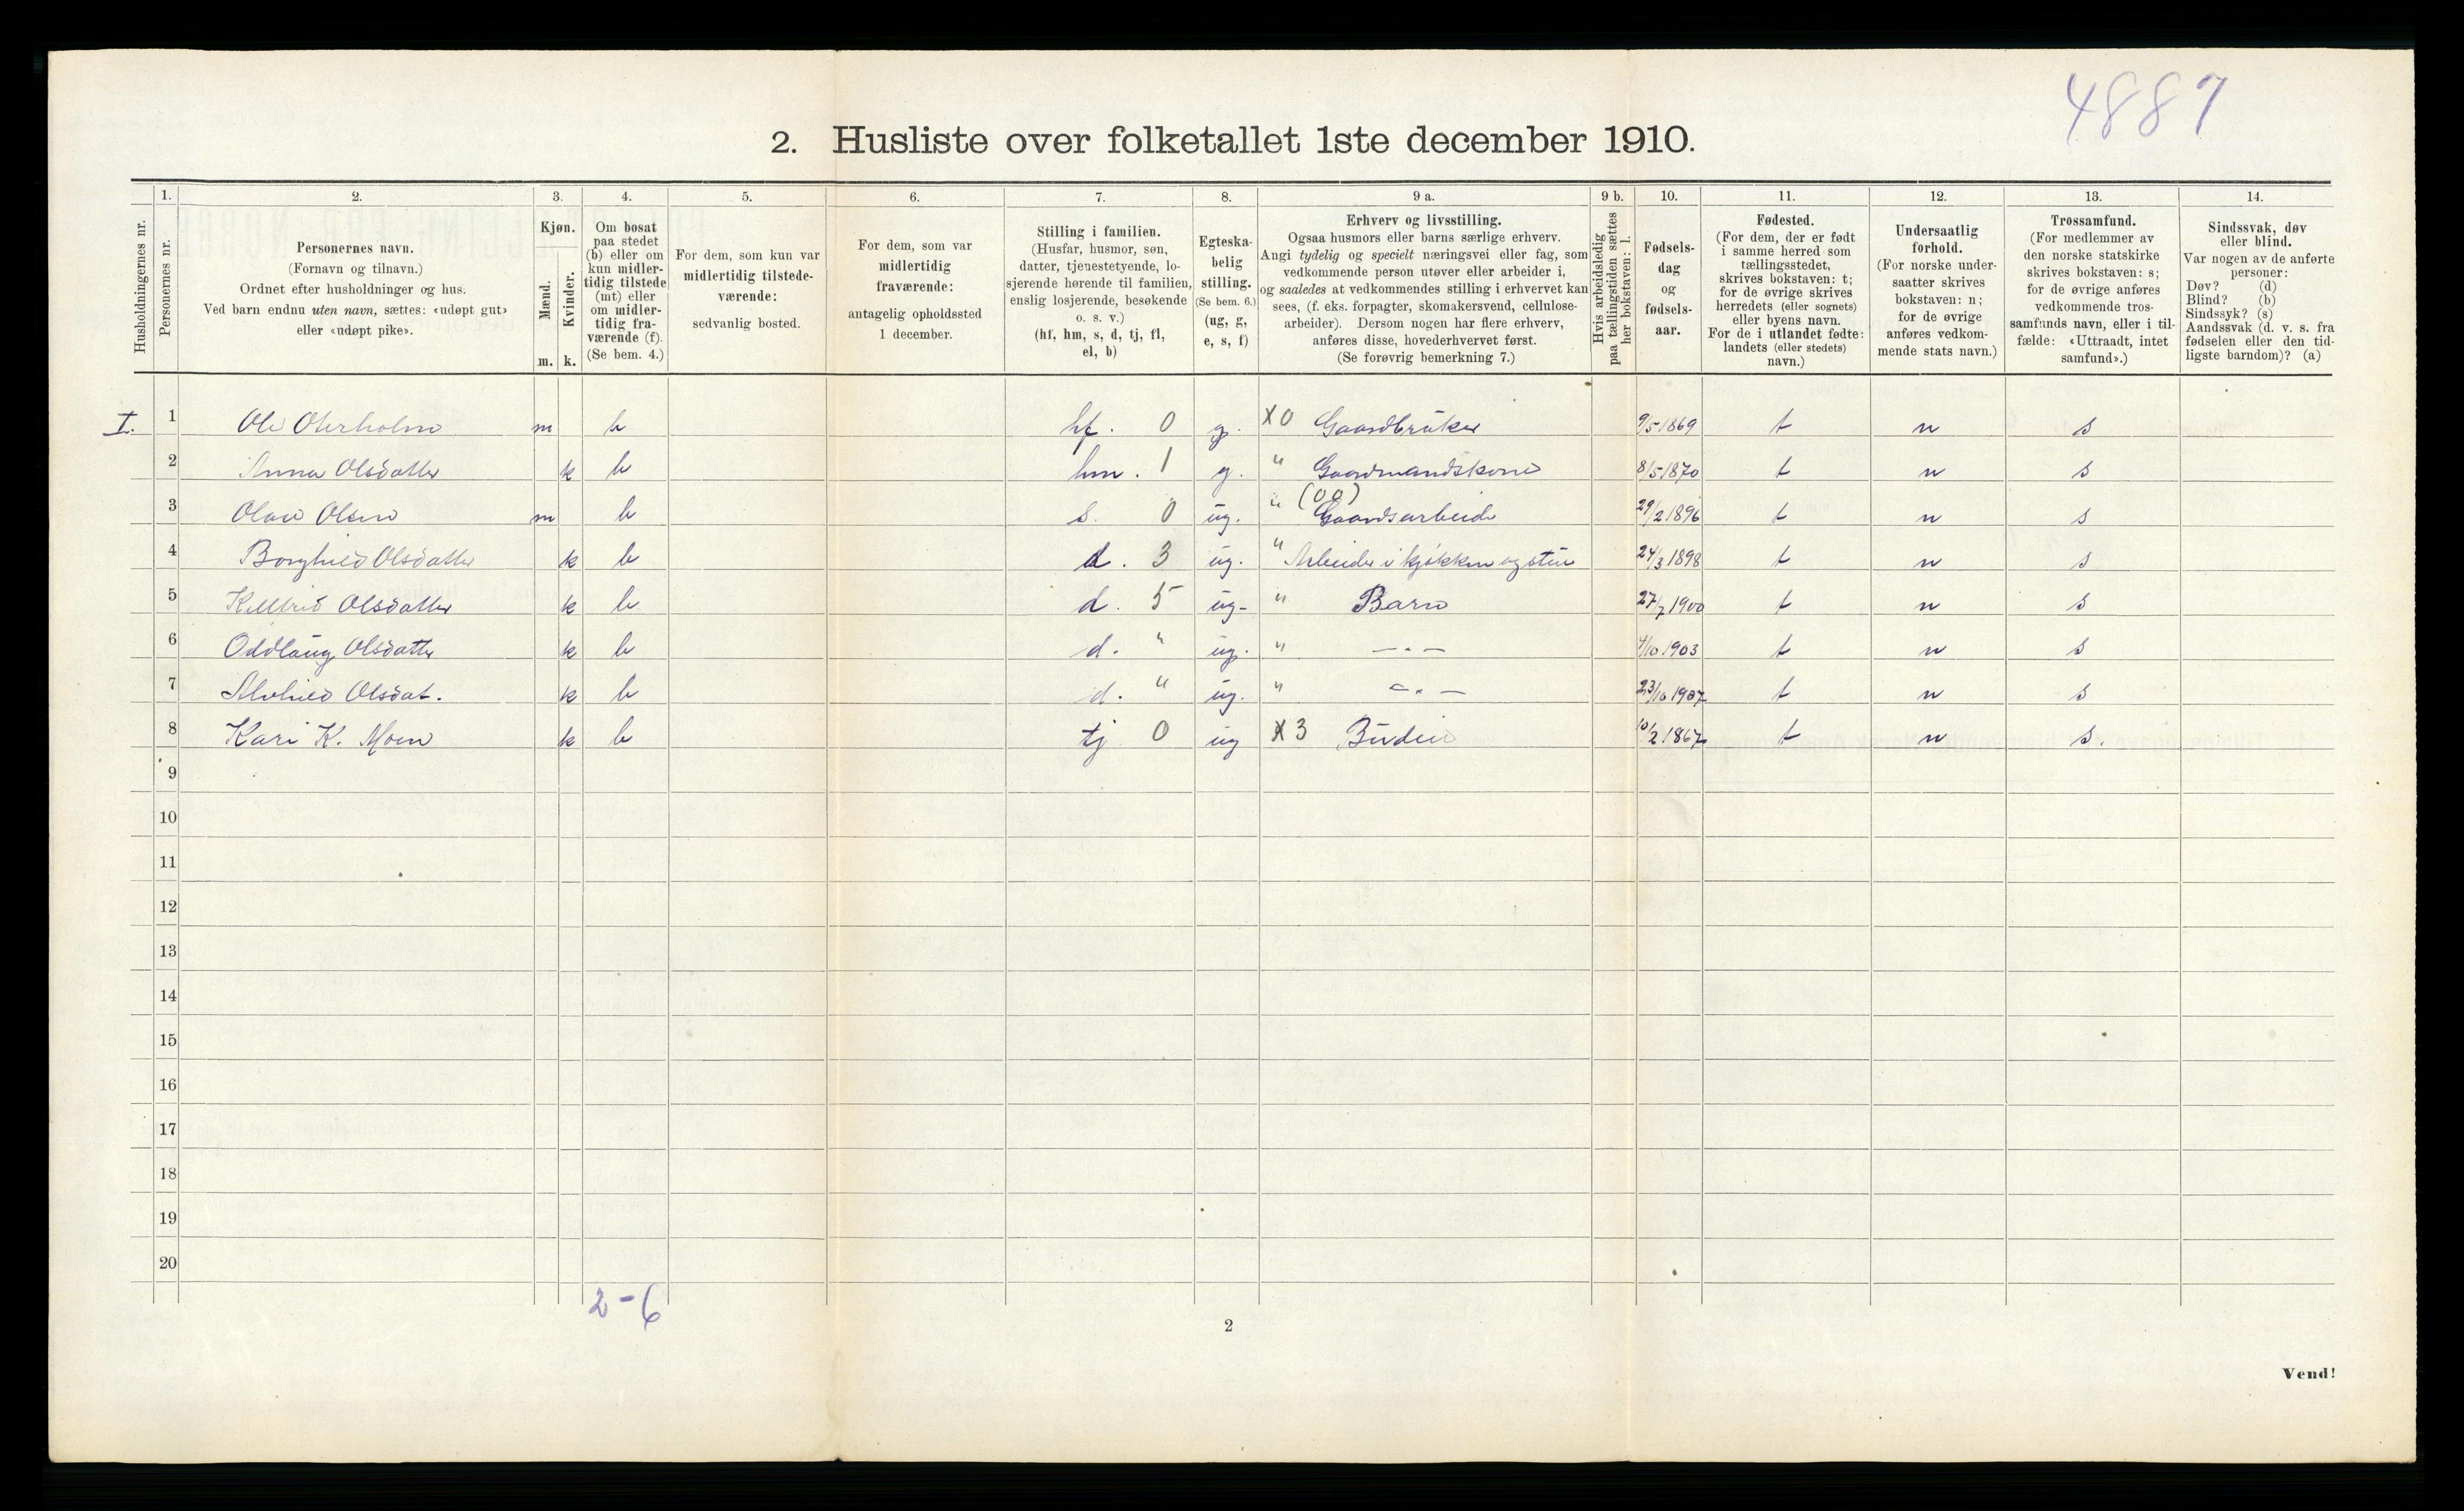 4887
2. Husliste over folketallet 1ste december 1910.
1. 2. 3. 4. 5. 6. 7. 8. 9 a. 9 b. 10. 11. 12. 13. 14.
Husholdningernes nr.
Personernes nr.
Personernes navn.
(Fornavn og tilnavn.)
Ordnet efter husholdninger og hus.
Ved barn endnu uten navn, sættes: «udøpt gut»
eller «udøpt pike».
Kjøn.
Mænd.
Kvinder.
m. k.
Om bosat
paa stedet
(b) eller om
kun midler-
tidig tilstede
(mt) eller
om midler-
tidig fra-
værende (f).
(Se bem. 4.)
For dem, som kun var
midlertidig tilstede-
værende:
sedvanlig bosted.
For dem, som var
midlertidig
fraværende:
antagelig opholdssted
1 december.
Stilling i familien.
(Husfar, husmor, søn,
datter, tjenestetyende, lo-
sjerende hørende til familien,
enslig losjerende, besøkende
o. s. v.)
(hf, hm, s, d, tj, fl,
el, b)
Egteska-
belig
stilling.
(Se bem. 6.)
(ug, g,
e, s, f)
Erhverv og livsstilling.
Ogsaa husmors eller barns særlige erhverv.
Angi tydelig og specielt næringsvei eller fag, som
vedkommende person utøver eller arbeider i,
og saaledes at vedkommendes stilling i erhvervet kan
sees, (f. eks. forpagter, skomakersvend, cellulose-
arbeider). Dersom nogen har flere erhverv,
anføres disse, hovederhvervet først.
(Se forøvrig bemerkning 7.)
Hvis arbeidsledig
paa tællingstiden sættes
her bokstaven: l.
Fødsels-
dag
og
fødsels-
aar.
Fødested.
(For dem, der er født
i samme herred som
tællingsstedet,
skrives bokstaven: t;
for de øvrige skrives
herredets (eller sognets)
eller byens navn.
For de i utlandet fødte:
landets (eller stedets)
navn.)
Undersaatlig
forhold.
(For norske under-
saatter skrives
bokstaven: n;
for de øvrige
anføres vedkom-
mende stats navn.)
Trossamfund.
(For medlemmer av
den norske statskirke
skrives bokstaven: s;
for de øvrige anføres
vedkommende tros-
samfunds navn, eller i til-
fælde: «Uttraadt, intet
samfund».)
Sindssvak, døv
eller blind.
Var nogen av de anførte
personer:
Døv? (d)
Blind? (b)
Sindssyk? (s)
Aandssvak (d. v. s. fra
fødselen eller den tid-
ligste barndom)? (a)
I. 1 Ole m b hf. 0 g. X0 Gaardbruker 9/5 1869 t n s
2 Anna Olsdatter k b hm. 1 g. " Gaardmandskone 8/5 1870 t n s
3 Olav Olsen m b s. 0 ug. " (00) Gaardsarbeide 29/2 1896 t n s
4 Borghild Olsdatter k b d. 3 ug. " Arbeider i kjøkken og stue 24/3 1898 t n s
5 Olsdatter k b d. 5 ug- " Barn 27/7 1900 t n s
6 Oddlaug Olsdatter k b d. " ug. " —"— 4/10 1903 t n s
7 Alvhild Olsdat. k b d. " ug. " —"— 23/10 1907 t n s
8 Kari K. Moen k b tj 0 ug X3 Budeie 10/2 1867 t n s.
9
10
11
12
13
14
15
16
17
18
19
20
2-6
2
Vend!